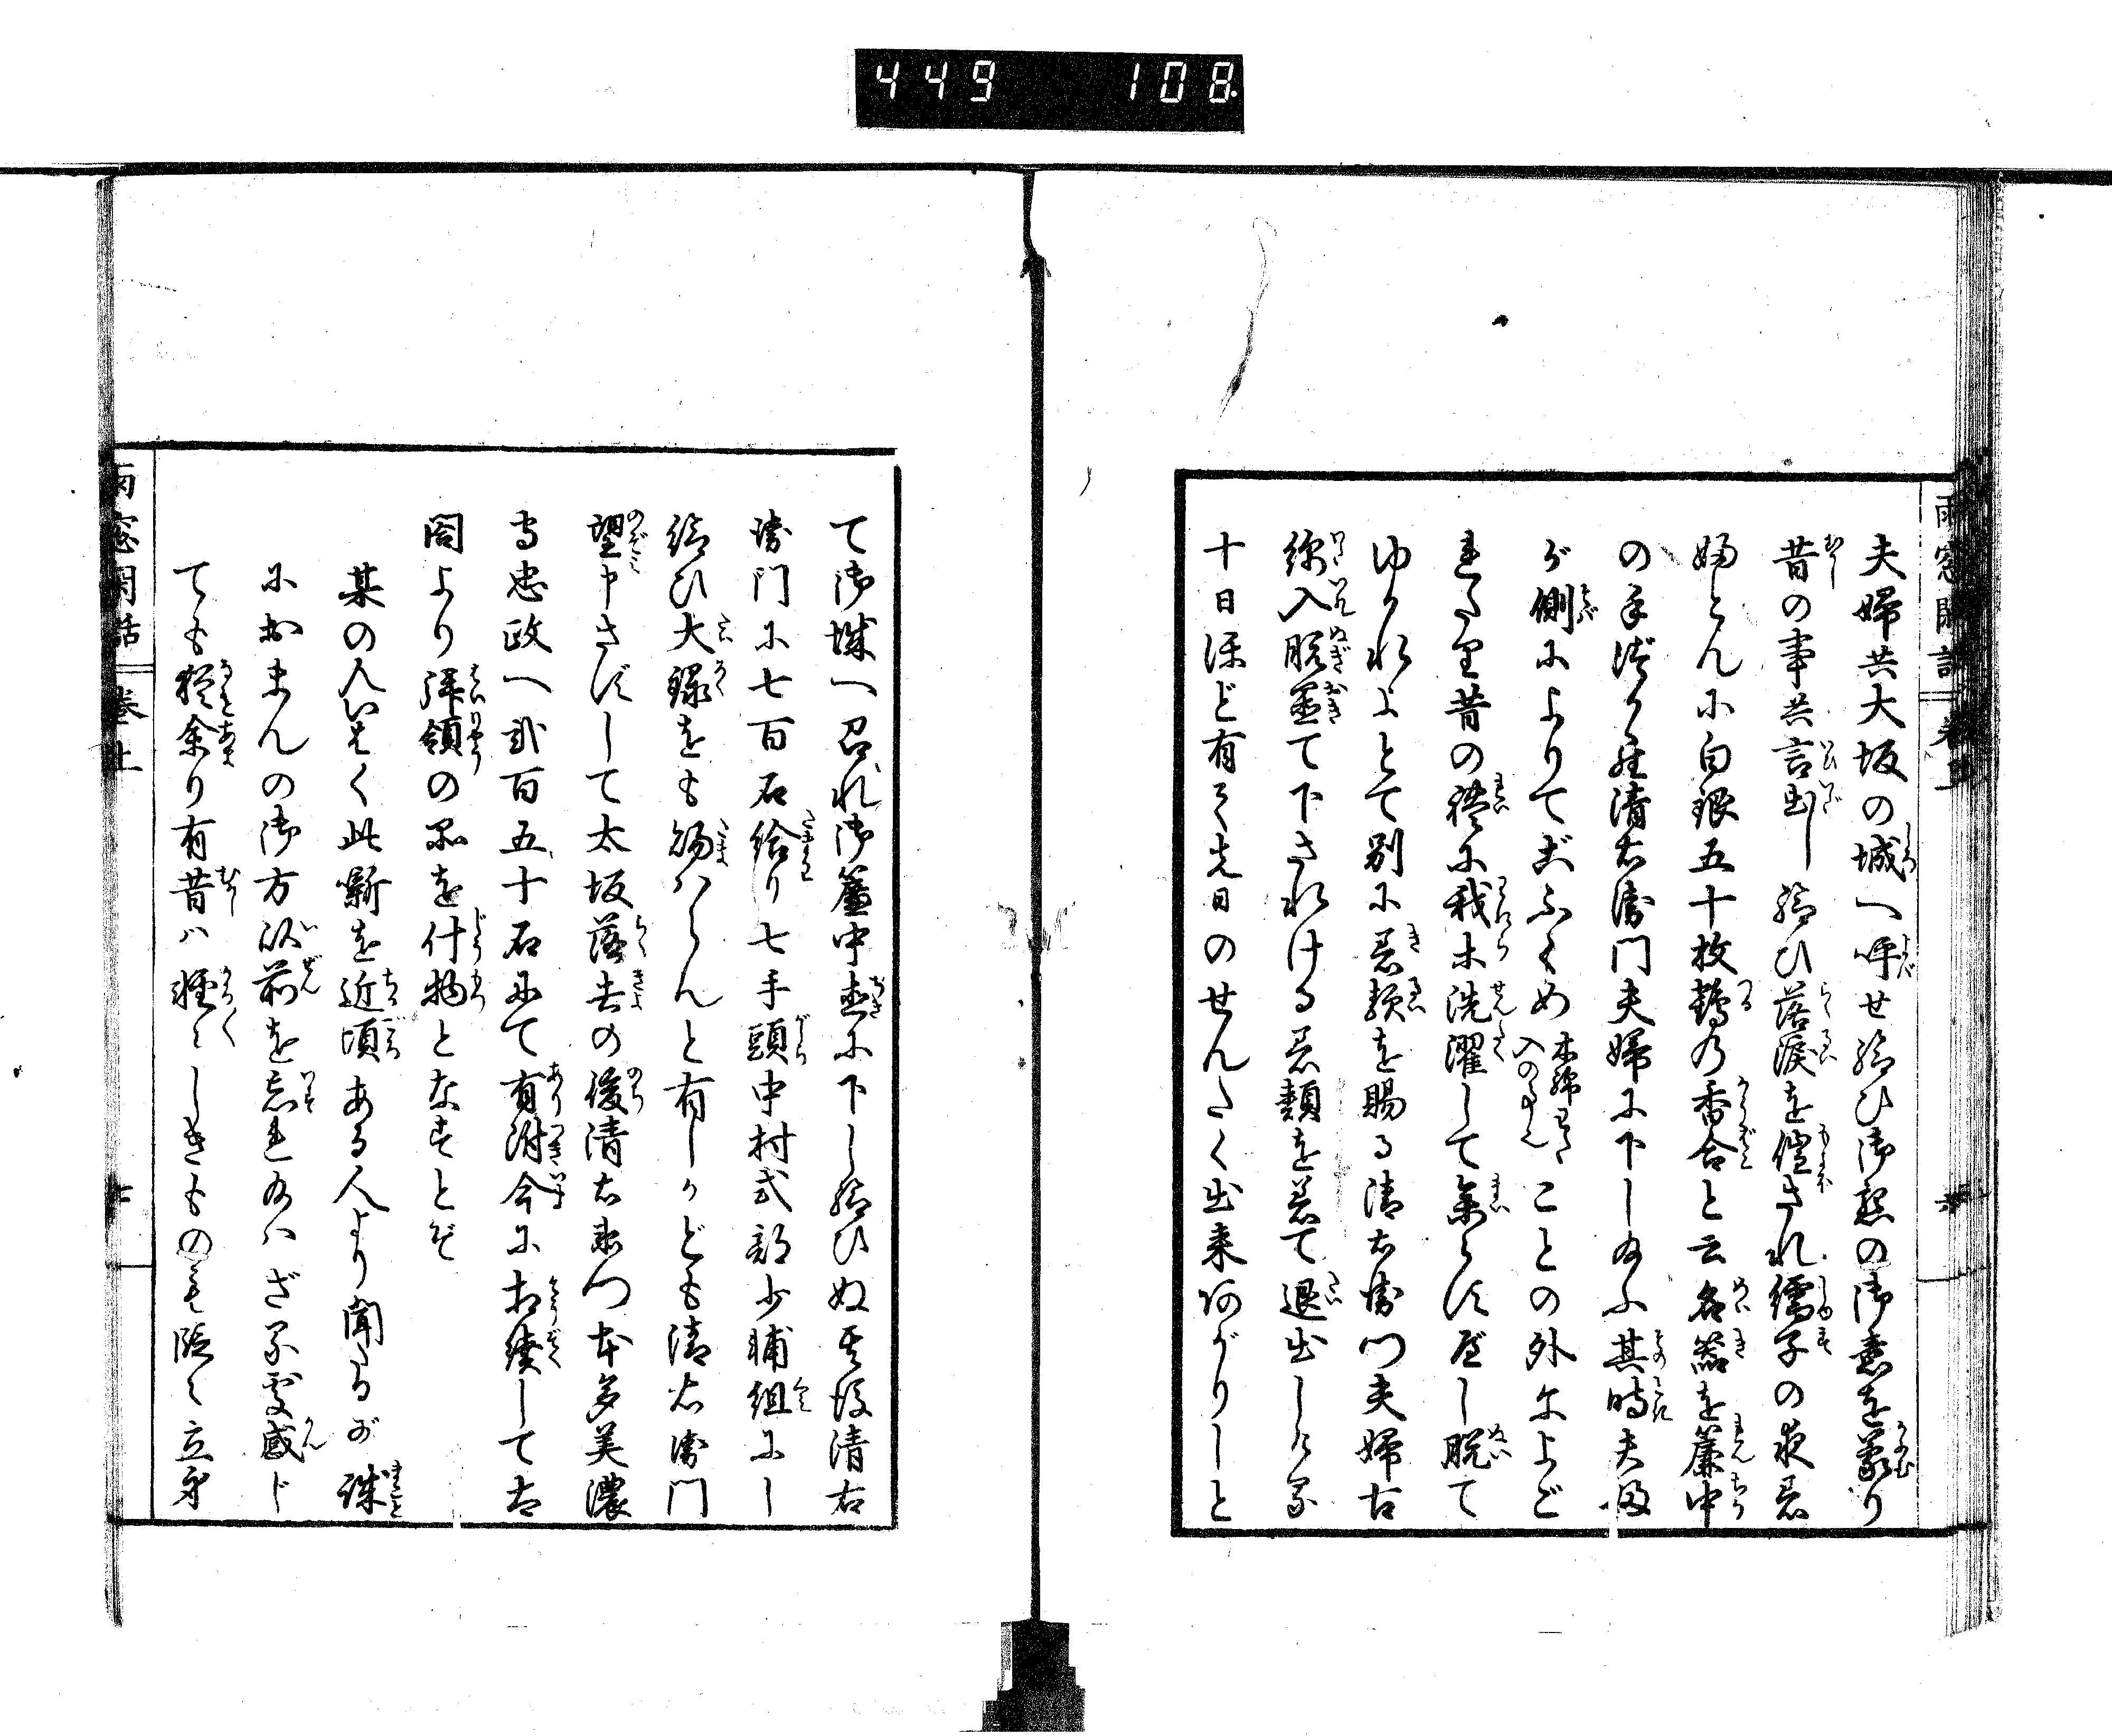 449 108
雨窓閑話 巻上
夫婦共大坂の城へ呼せ給ひ御懇の御意を蒙り
昔の事共言出し給ひ落涙を催され孺子の夜着
婦とんに白銀五十枚鶴の香合と云名器を簾中
の手づから清右衛門夫婦に下し給ふ其時夫婦
が側によりてどふくめ木綿わた入の事也ことの外によご
れたり昔の礼に我等洗濯して参らすべし脱て
ゆかれよとて別に着類を賜る清右衛門夫婦古
綿入脱置て下されける着類を着て退出しける
十日ほど有て先日のせんたく出来あがりしと
て御城へ召れ御簾中直に下し給ひぬ其後清右
衛門に七百石給り七手頭中村式部少輔組にし
給ひ大禄をも賜はらんと有しかども清右衛門
望申さずして大坂落去の後清右衛門本多美濃
守忠政へ弐百五十石にて有附今に相続して太
閤より拝領の品を什物となすとぞ
某の人いはく此噺を近頃ある人より聞たるが誠
におまんの御方以前を忘れ給はざる處感じ
ても猶余り有昔は軽々しきもの
立身
雨窓閑話 巻上 七